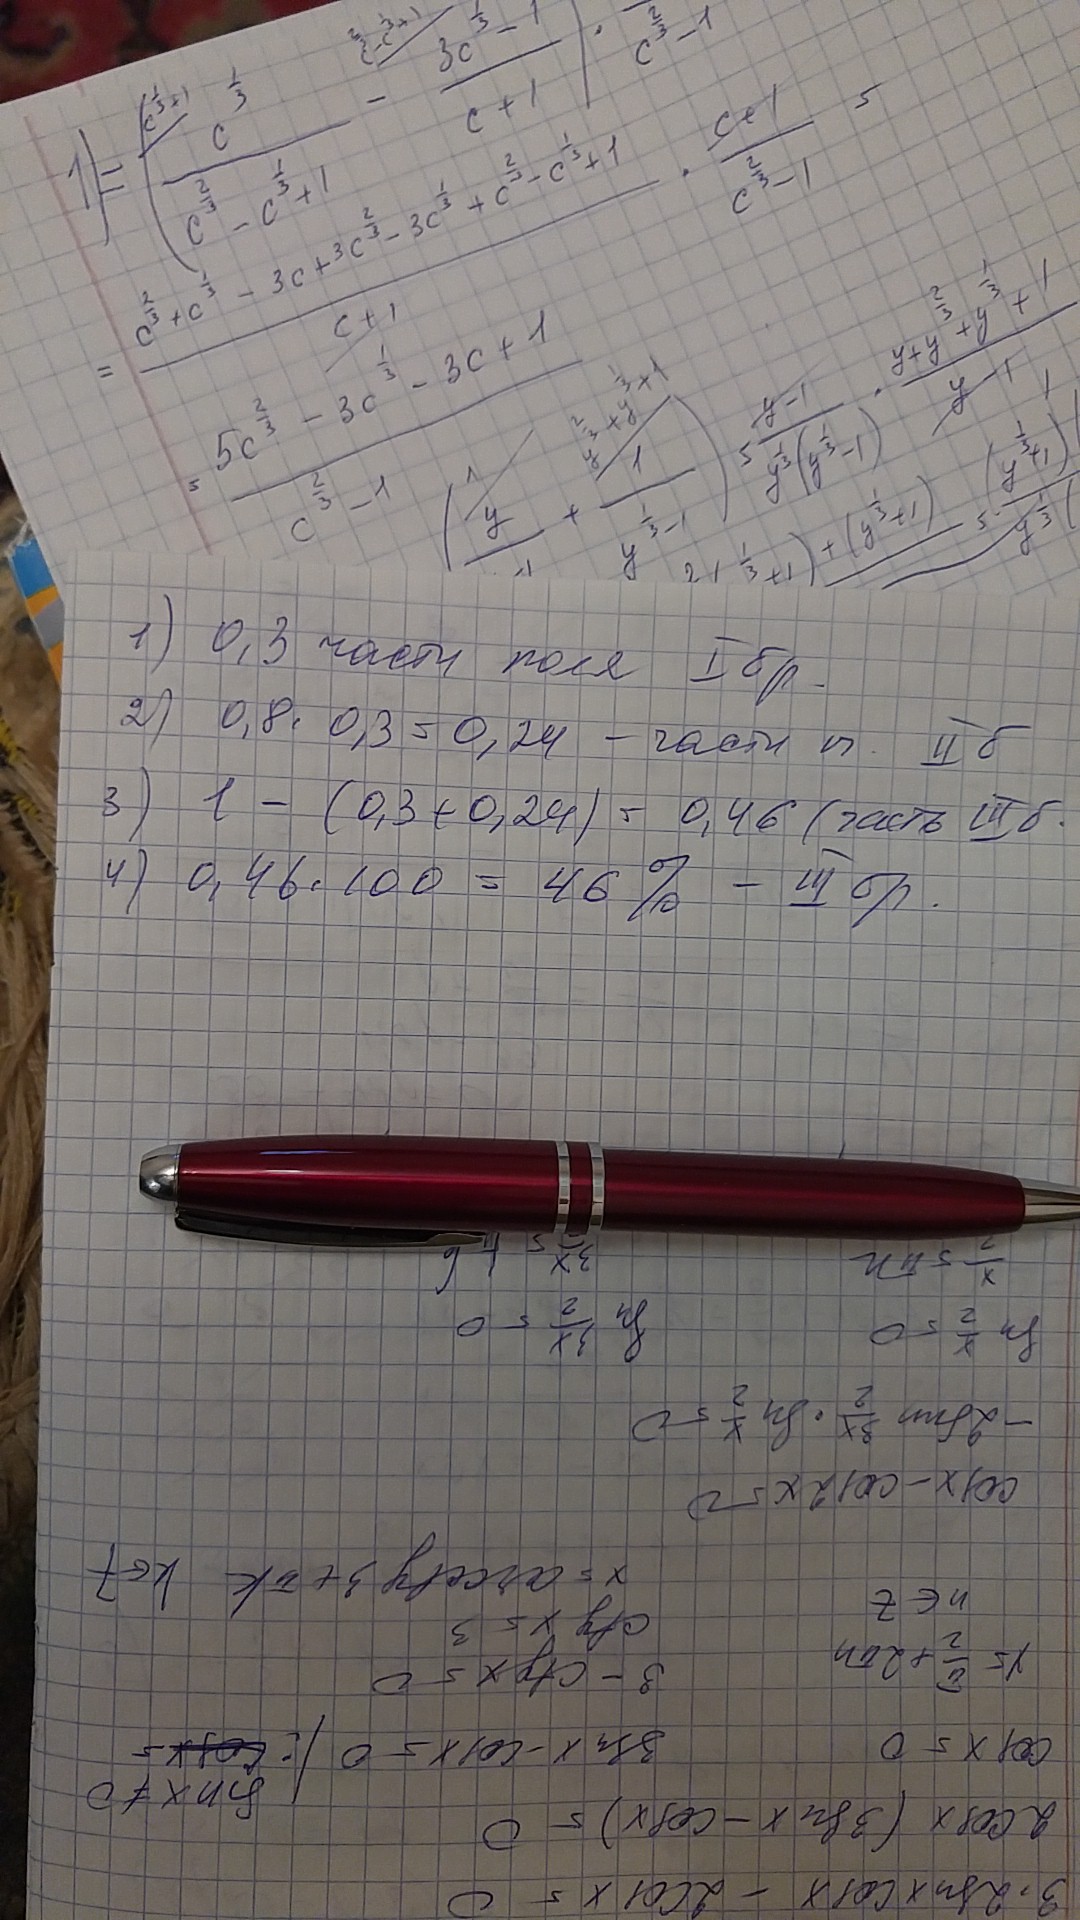 1) = (c^{1/3} / (c^{2/3} - c^{1/3} + 1) - (3c^{1/3} - 1) / (c + 1)) · / (c^{2/3} - 1)
= (c^{2/3} + c^{1/3} - 3c + 3c^{2/3} - 3c^{1/3} + c^{2/3} - c^{1/3} + 1) / (c + 1) · (c + 1) / (c^{2/3} - 1) =
= (5c^{2/3} - 3c^{1/3} - 3c + 1) / (c^{2/3} - 1)
(y / + 1 / (y^{1/3} - 1)) = (y - 1) / (y^{1/3}(y^{1/3} - 1)) · (y + y^{2/3} + y^{1/3} + 1) / (y - 1)
+ (y^{1/3} + 1) = (y^{1/3} + 1) / y^{1/3}(
1) 0,3 части поля I бр.
2) 0,8 · 0,3 = 0,24 - части п. II б
3) 1 - (0,3 + 0,24) = 0,46 (часть III б.
4) 0,46 · 100 = 46 % - III бр.
3 · 2sin x cos x - 2cos x = 0
2cos x (3sin x - cos x) = 0
sin x ≠ 0
cos x = 0 3sin x - cos x = 0 /:
3 - ctg x = 0
x = π/2 + 2πn ctg x = 3
n ∈ Z x = arcctg 3 + πk k ∈ Z
cos x - cos 2x = 0
- 2sin 3x/2 · sin x/2 = 0
sin x/2 = 0 sin 3x/2 = 0
x/2 = πn 3x/2 =